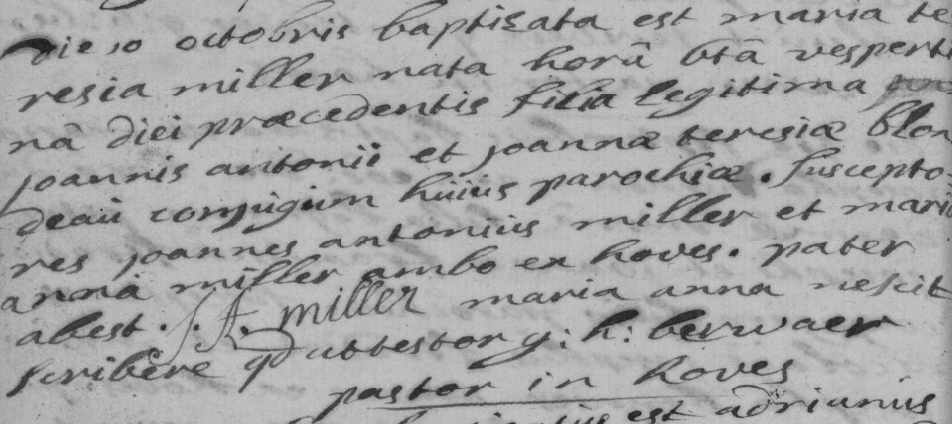 Die 10 octobris baptizata est maria te
resia miller nata horâ 6tâ vesperti
nâ diei præcedentis filia legitima
joannis antonii et joannæ teresiæ blon
deaü conjugüm hüiüs parochiæ. suscepto
res joannes antoniüs miller et maria
anna miller ambo ex hoves. pater
abest. J. A. miller maria anna nescit
scribere qd attestor g: h: berwaer
pastor in hoves
est adrianüs